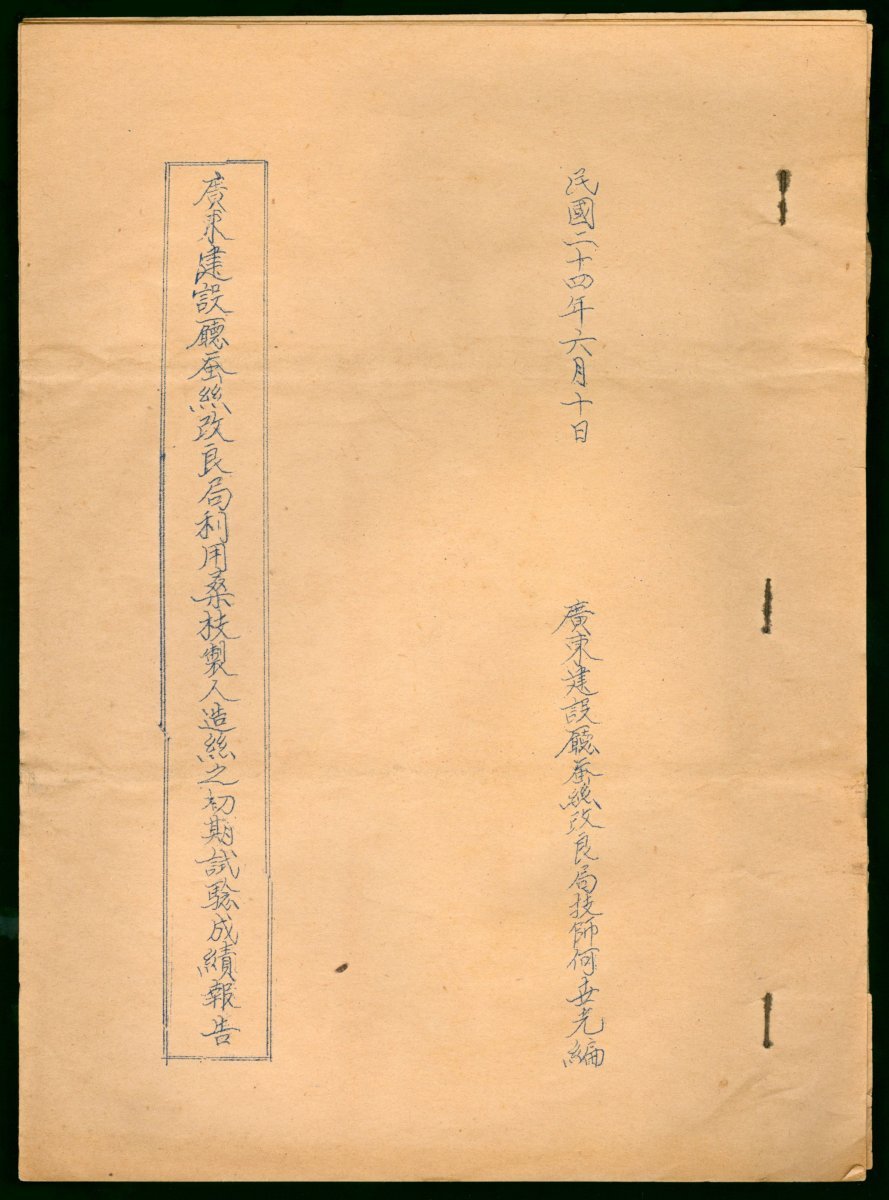 民國二十四年六月十日
廣東建設廳蚕絲改良局技師何世光編
廣東建設廳蚕絲改良局利用桑枝製人造絲之初期試騐成績報告